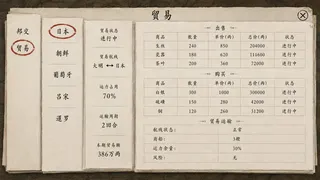 貿易
邦交
貿易
日本
朝鮮
葡萄牙
吕宋
暹罗
貿易状态
进行中
貿易航线
大明 ↔ 日本
运力占用
70%
运输周期
2回合
本期贸易额
386万两
出售
商品 数量 单价(两) 总价(两) 状态
生丝 240 850 204000 进行中
瓷器 180 620 111600 进行中
茶叶 200 360 72000 进行中
购买
商品 数量 单价(两) 总价(两) 状态
白银 300 1000 300000 进行中
硫磺 150 280 42000 进行中
铜 120 260 31200 进行中
贸易运输
航线状态: 正常
船期: 3期
运力余量: 30%
风险: 无